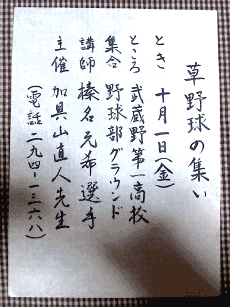 草野球の集い
とき 十月一日(金)
ところ 武蔵野第一高校
集合 野球部グラウンド
講師 榛名元希選手
主催 加具山直人先生
(電話 二九四-一三六八)